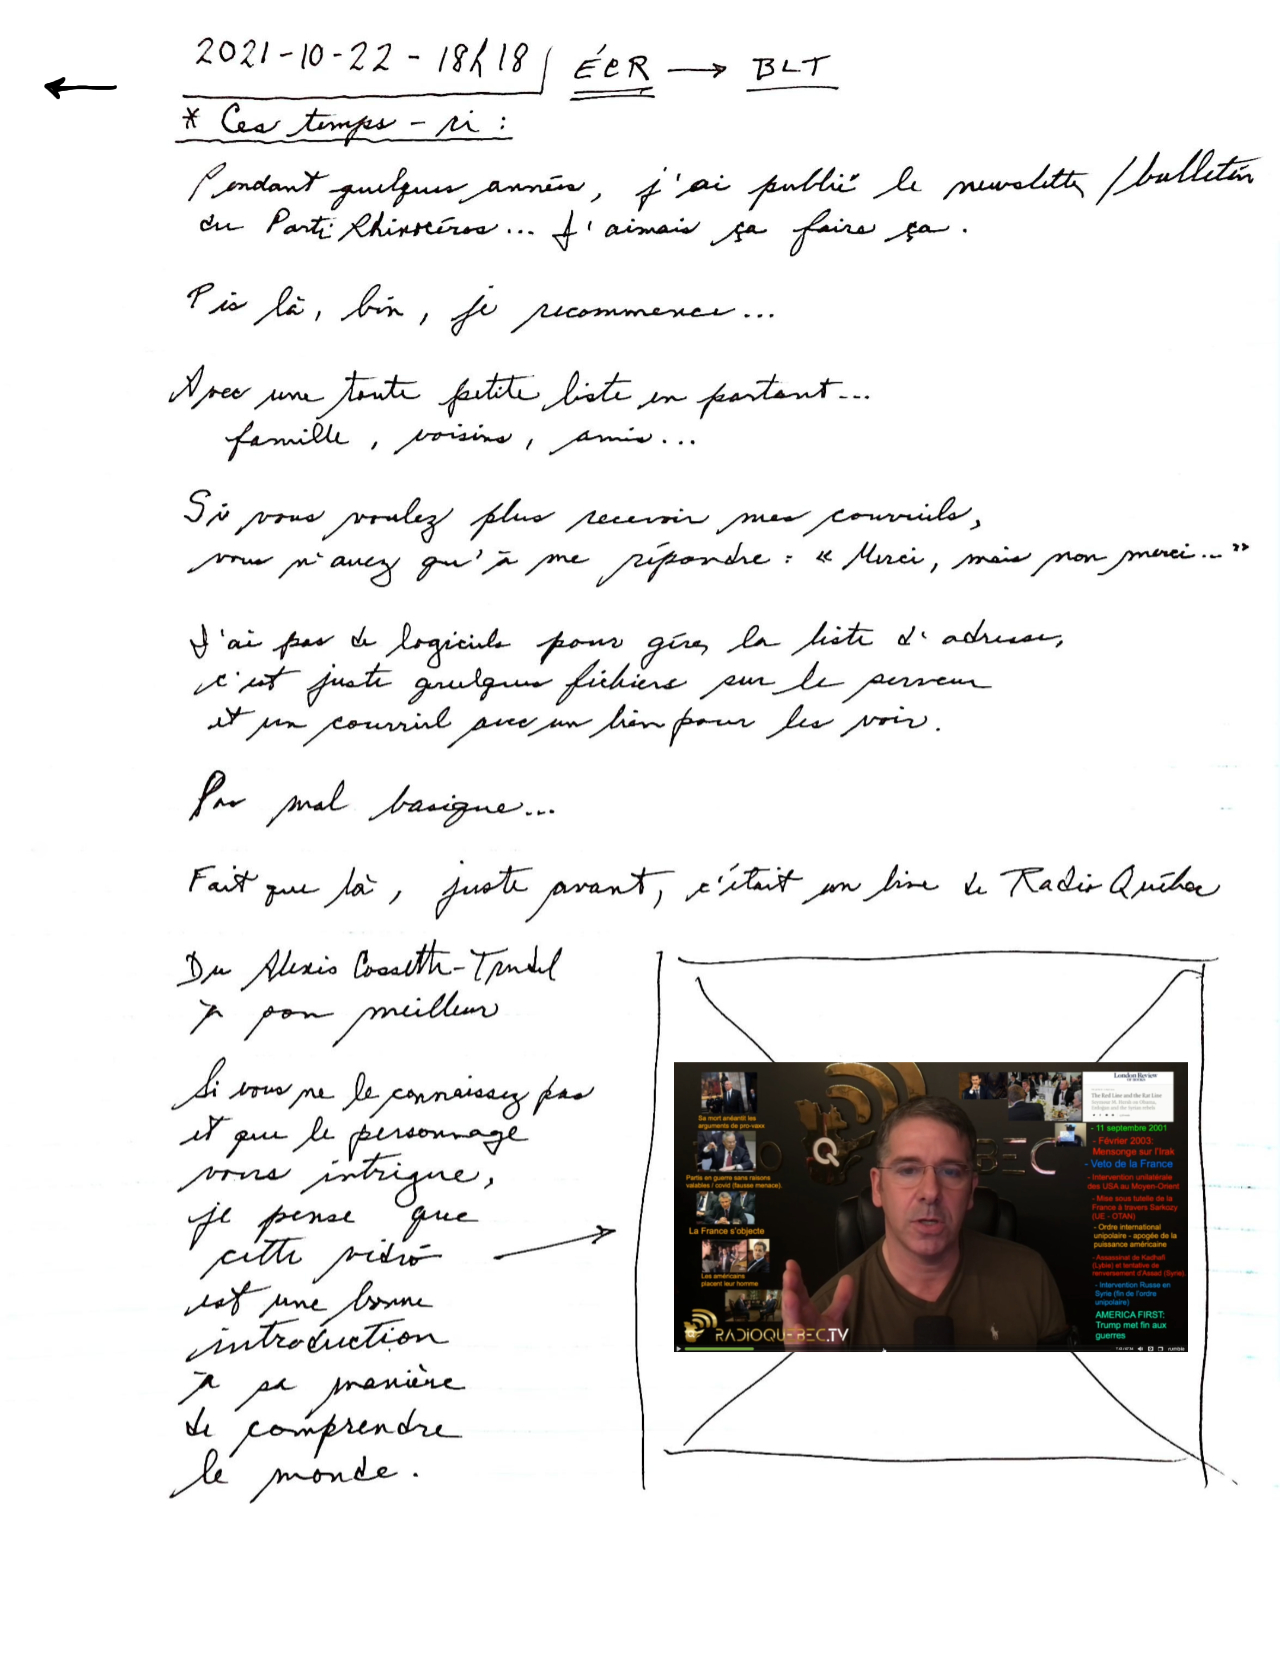 2021-10-22-18h18 ÉCR → BLT
←
* Ces temps-ci :
Pendant quelques années, j'ai publié le newsletter/bulletin
du Parti Rhinocéros... J'aimais ça faire ça.
Pis là, bin, je recommence...
Avec une toute petite liste en partant...
famille, voisins, amis...
Si vous voulez plus recevoir mes courriels,
vous n'avez qu'à me répondre : « Merci, mais non merci... »
J'ai pas de logiciels pour gérer la liste d'adresse,
c'est juste quelques fichiers sur le serveur
et un courriel avec un lien pour les voir.
Pas mal basique...
Fait que là, juste avant, c'était un live de Radio Québec
Du Alexis Cossette-Trudel
à son meilleur
Si vous ne le connaissez pas
et que le personnage
vous intrigue,
je pense que
cette vidéo →
est une bonne
introduction
à sa manière
de comprendre
le monde.
Sa mort anéantit les
arguments de pro-vaxx
Partis en guerre sans raisons
valables / covid (fausse menace).
La France s'objecte
Les américains
placent leur homme
RADIOQUEBEC.TV
Q
BEC
London Review
OF BOOKS
The Red Line and the Rat Line
Seymour M. Hersh on Obama,
Erdoğan and the Syrian rebels
- 11 septembre 2001
- Février 2003:
Mensonge sur l'Irak
- Veto de la France
- Intervention unilatérale
des USA au Moyen-Orient
- Mise sous tutelle de la
France à travers Sarkozy
(UE - OTAN)
- Ordre international
unipolaire - apogée de la
puissance américaine
- Assassinat de Kadhafi
(Lybie) et tentative de
renversement d'Assad (Syrie)
- Intervention Russe en
Syrie (fin de l'ordre
unipolaire)
AMERICA FIRST:
Trump met fin aux
guerres
rumble